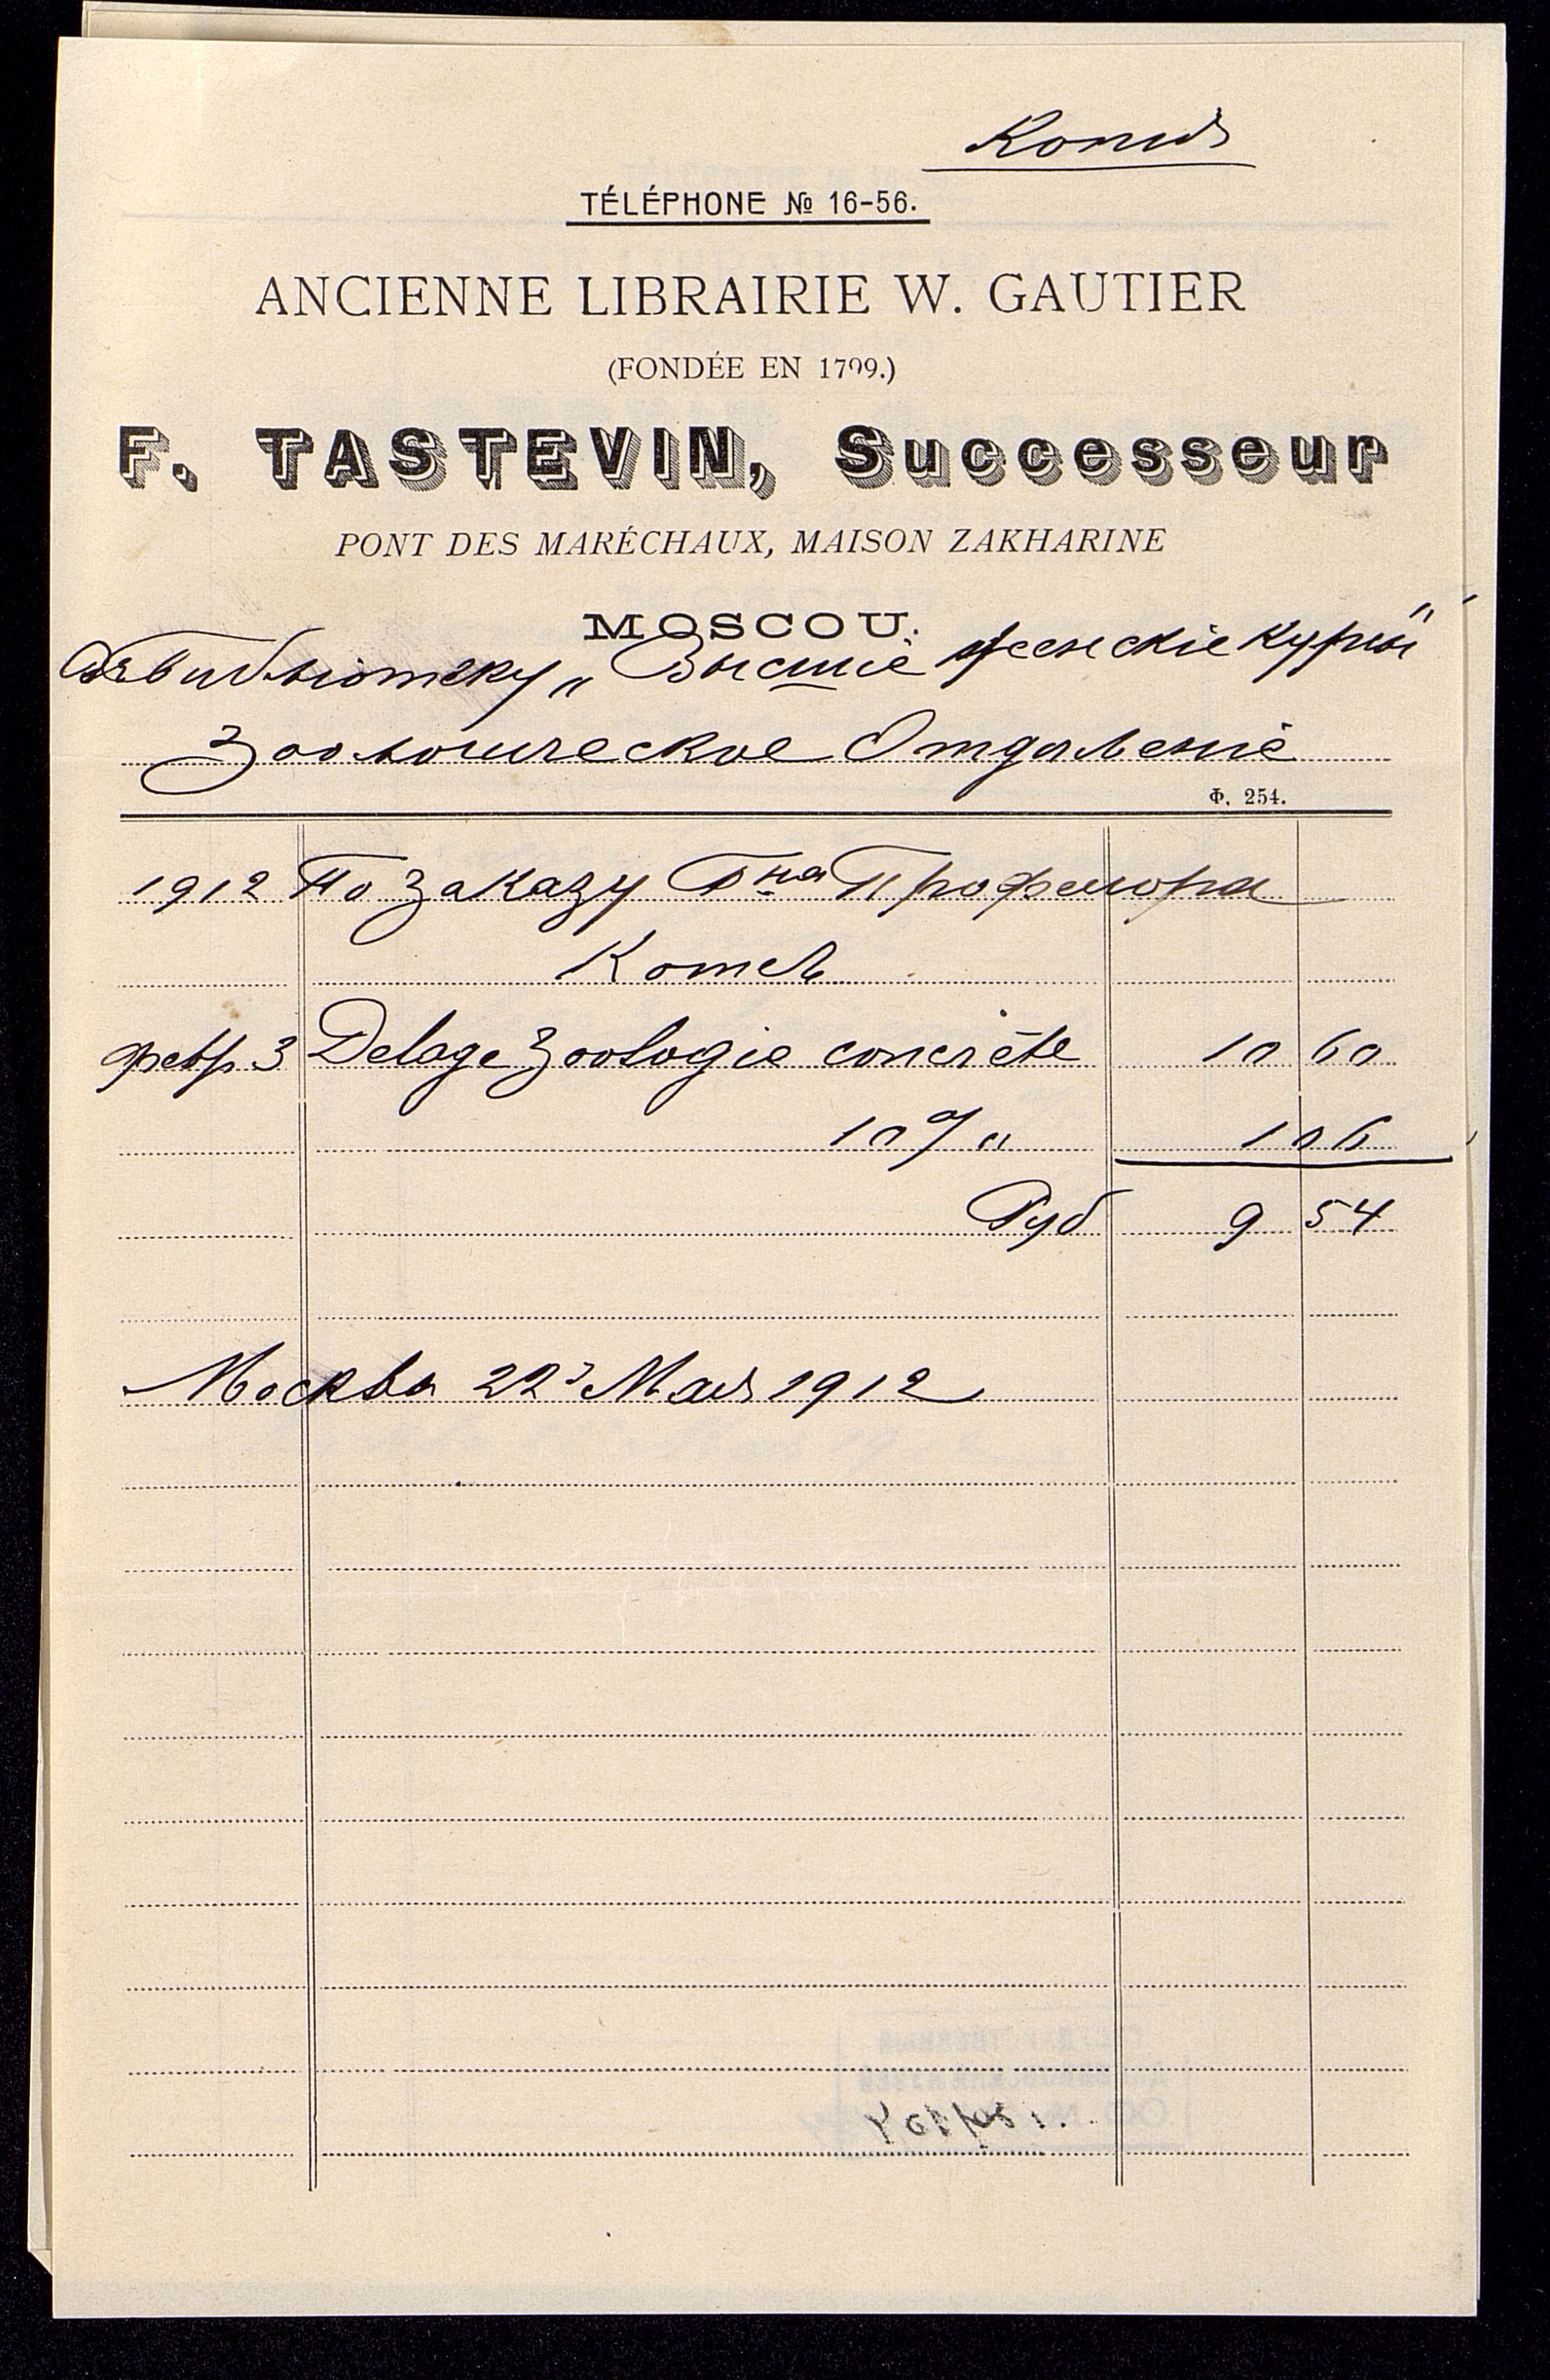 Копія
TÉLÉPHONE № 16-56.
ANCIENNE LIBRAIRIE W. GAUTIER
(FONDÉE EN 1799.)
F. TASTEVIN, Successeur
PONT DES MARÉCHAUX, MAISON ZAKHARINE
MOSCOU.
Въ Библіотеку „Высшіе женскіе курсы"
Зоологическое Отдѣленіе
Ф. 254.
1912 По заказу Гна Профессора
февр 3 Delage Zoologie concrète 10 60
10% 1 06
Руб 9 54
Москва 22 Мая 1912